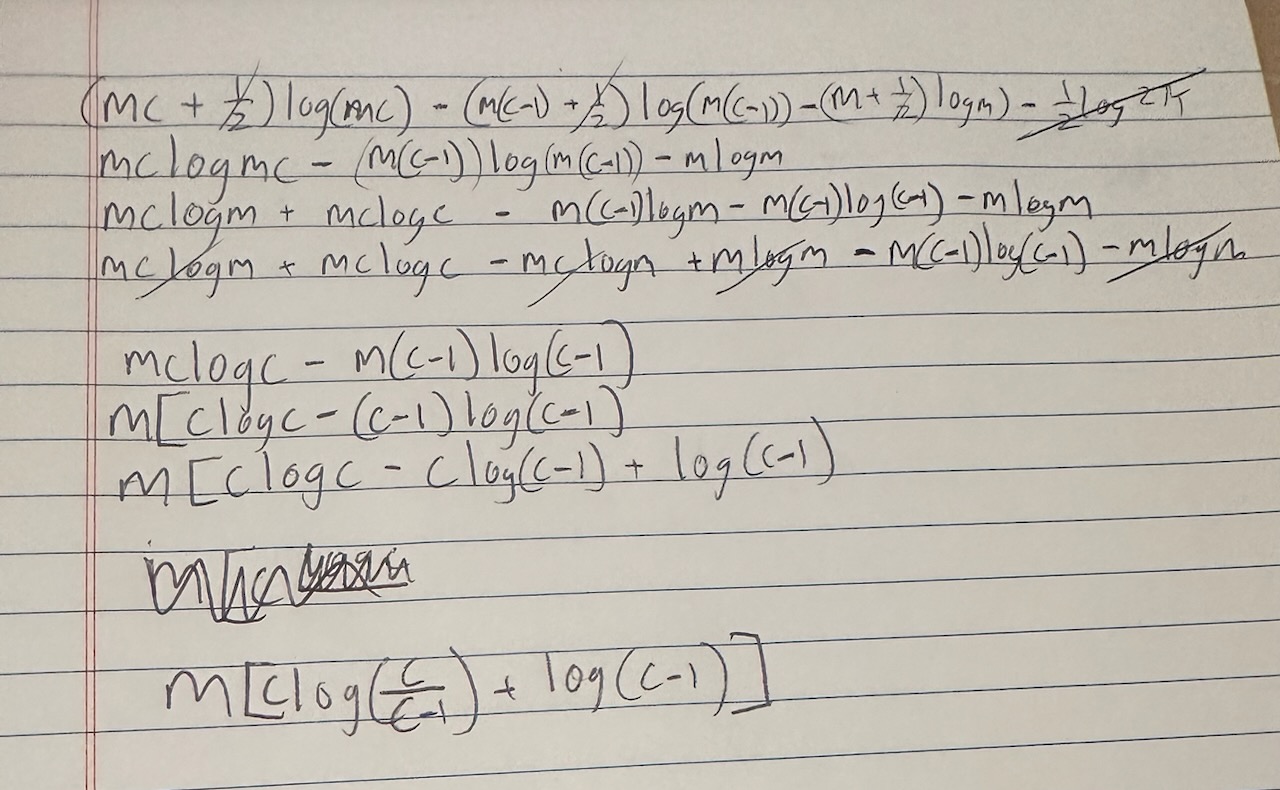 (mc + 1/2) log(mc) - (m(c-1) + 1/2) log(m(c-1)) - (m + 1/2) log m) - 1/2 log 2π
mc log mc - (m(c-1)) log(m(c-1)) - m log m
mc log m + mc log c - m(c-1) log m - m(c-1) log(c-1) - m log m
mc log m + mc log c - mc log m + m log m - m(c-1) log(c-1) - m log m
mc log c - m(c-1) log(c-1)
m[c log c - (c-1) log(c-1)
m[c log c - c log(c-1) + log(c-1)
m[c log(c/c-1) + log(c-1)]